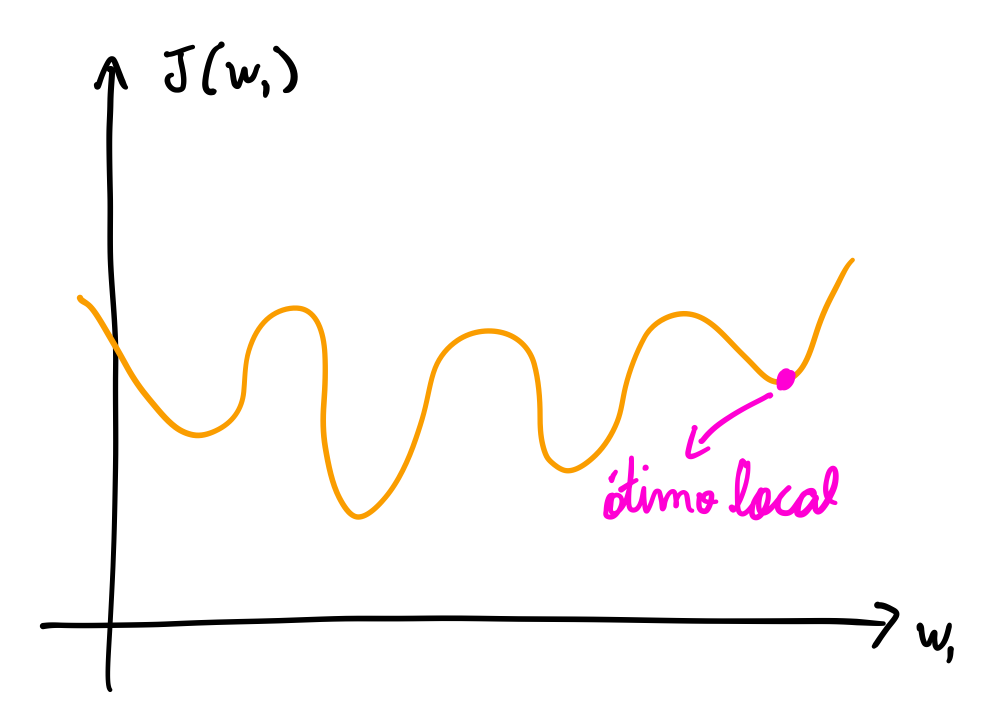 J(w₁)
ótimo local
w₁